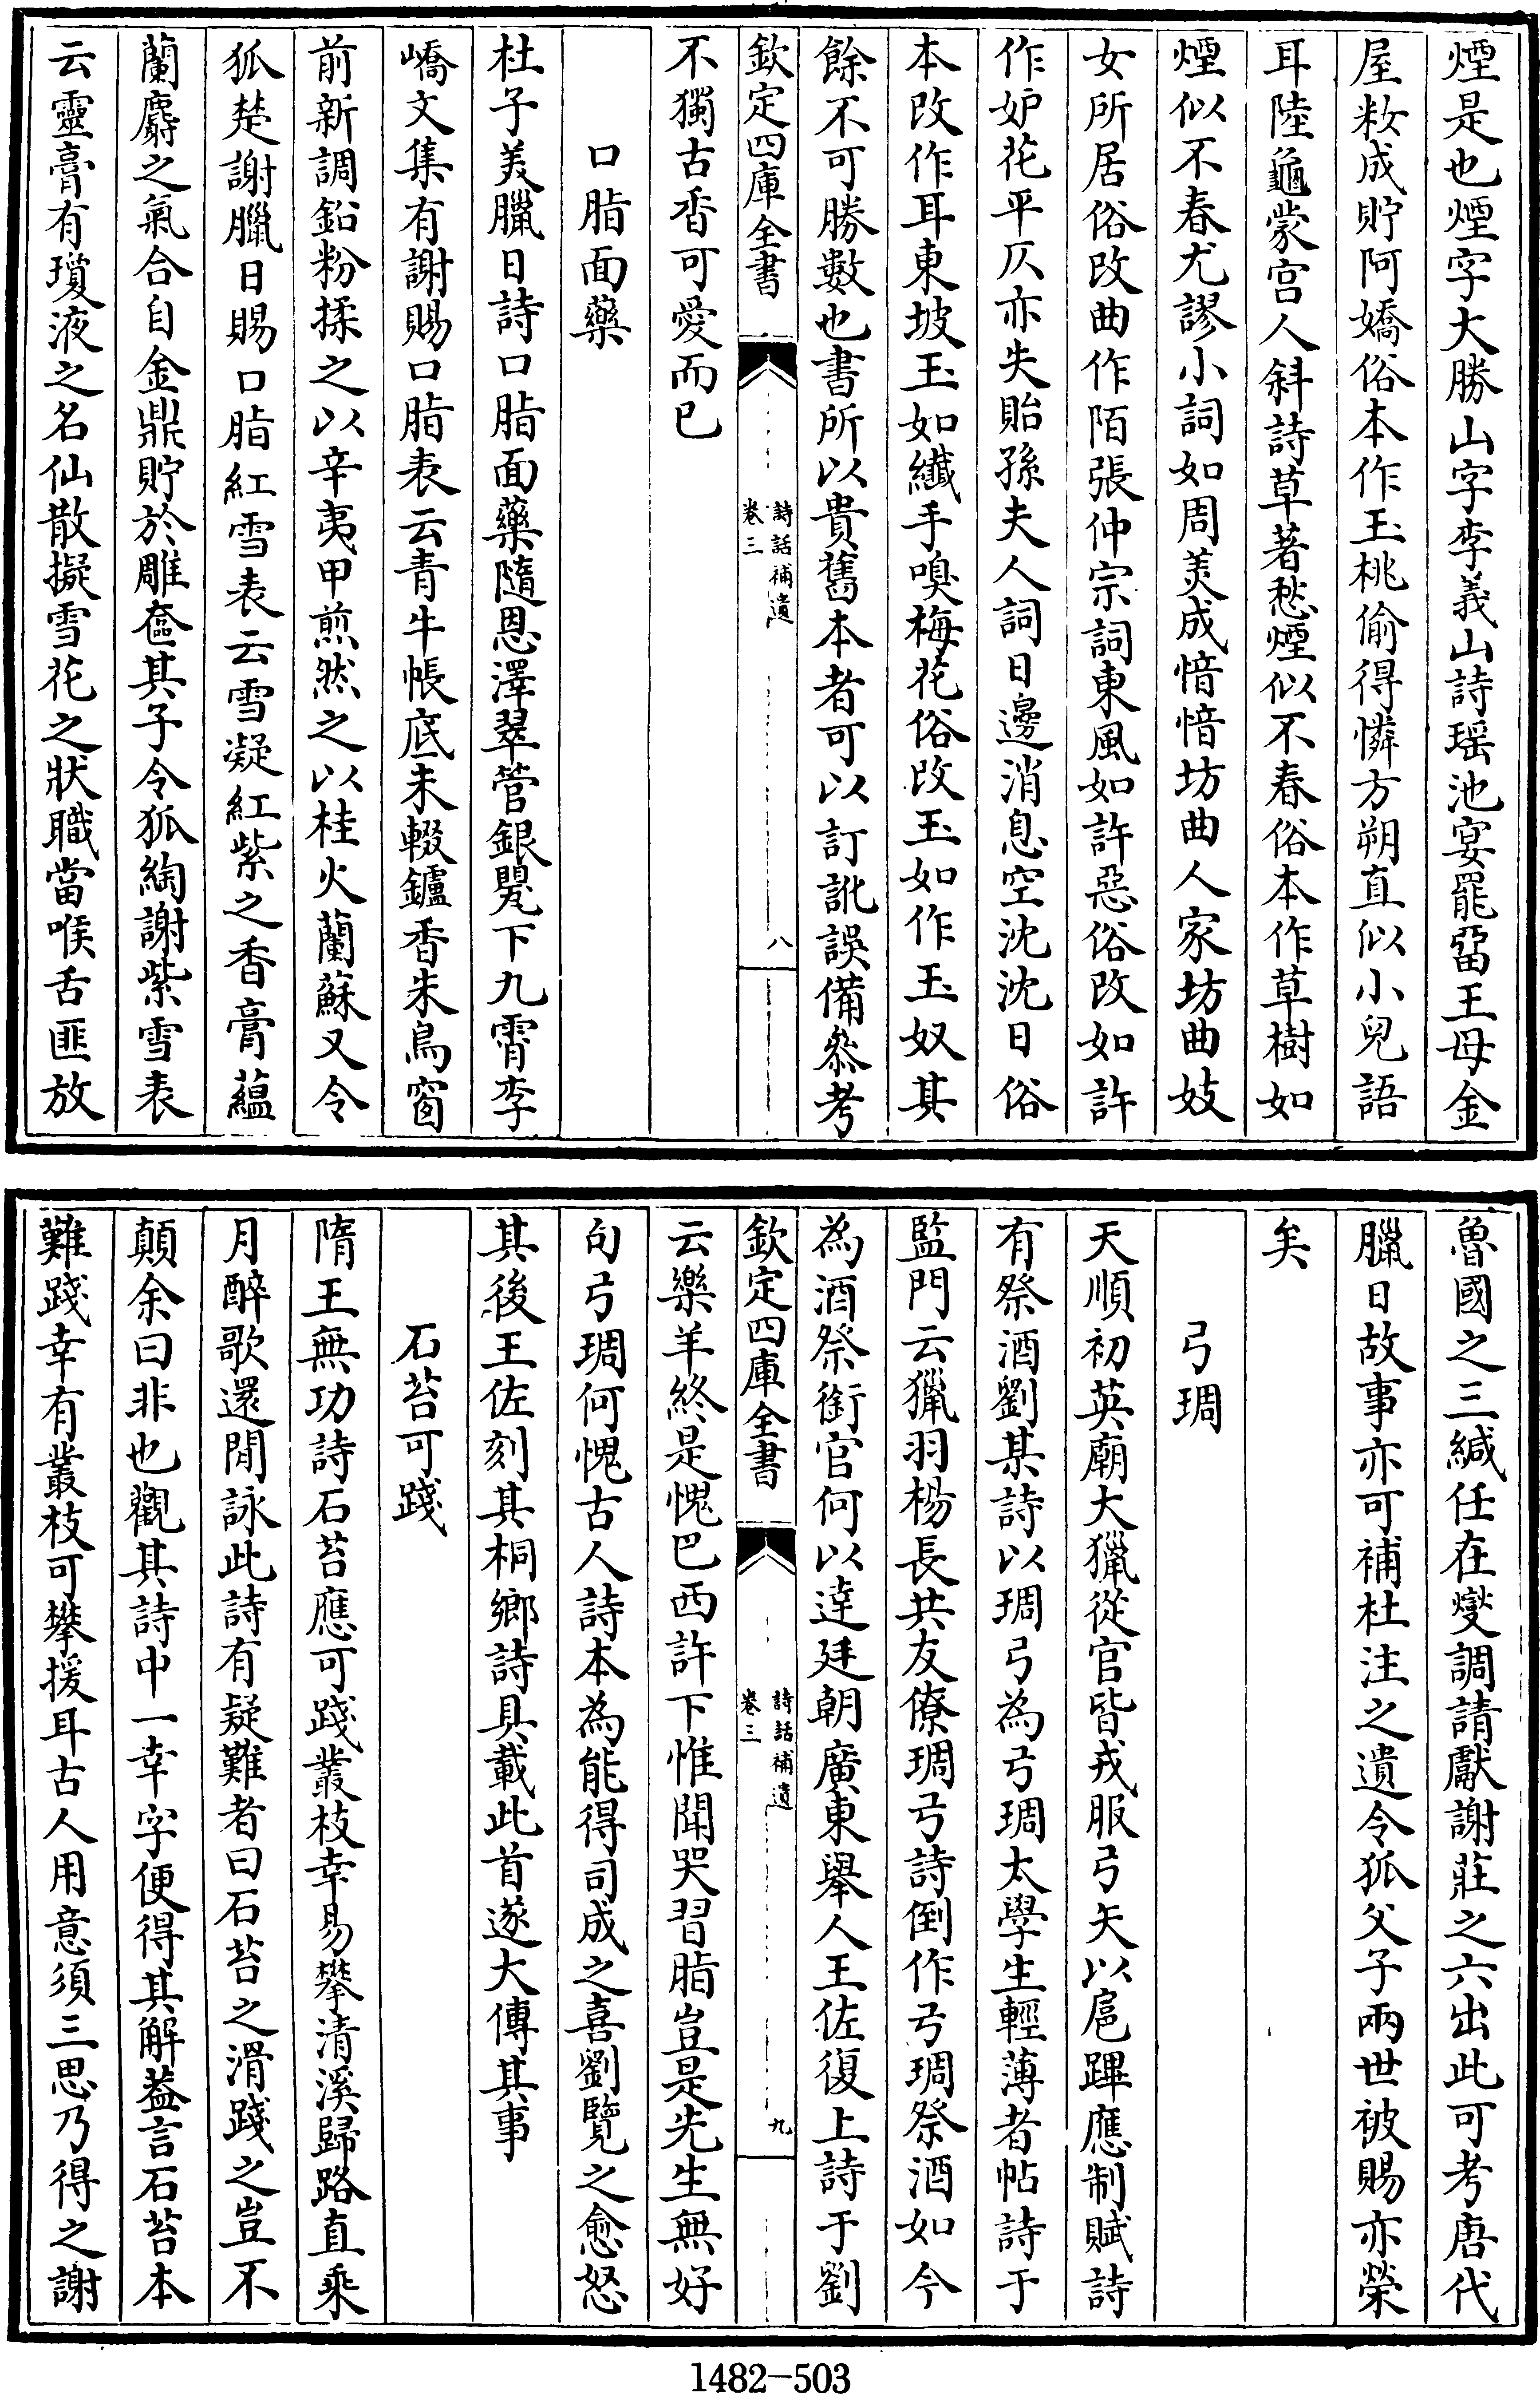 煙是也煙字大勝山字李義山詩瑶池宴罷畱王母金
屋粧成貯阿嬌俗本作玉桃偷得憐方朔直似小兒語
耳陸龜蒙宫人斜詩草著愁煙似不春俗本作草樹如
煙似不春尤謬小詞如周美成愔愔坊曲人家坊曲妓
女所居俗改曲作陌張仲宗詞東風如許惡俗改如許
作妒花平仄亦失貽孫夫人詞日邊消息空沈沈日俗
本改作耳東坡玉如纖手嗅梅花俗改玉如作玉奴其
餘不可勝數也書所以貴舊本者可以訂訛誤備叅考
欽定四庫全書
詩話補遺
卷三
八
不獨古香可愛而已
口脂面藥
杜子美臘日詩口脂面藥隨恩澤翠管銀甖下九霄李
嶠文集有謝賜口脂表云青牛帳底未輟鑪香朱鳥窗
前新調鉛粉揉之以辛夷甲煎然之以桂火蘭蘇又令
狐楚謝臘日賜口脂紅雪表云雪凝紅紫之香膏蘊
蘭麝之氣合自金鼎貯於雕奩其子令狐綯謝紫雪表
云靈膏有瓊液之名仙散擬雪花之狀職當喉舌匪放
魯國之三緘任在燮調請獻謝莊之六出此可考唐代
臘日故事亦可補杜注之遺令狐父子兩世被賜亦榮
矣
弓琱
天順初英廟大獵從官皆戎服弓矢以扈蹕應制賦詩
有祭酒劉某詩以琱弓為弓琱太學生輕薄者帖詩于
監門云獵羽楊長共友僚琱弓詩倒作弓琱祭酒如今
為酒祭銜官何以達廷朝廣東舉人王佐復上詩于劉
欽定四庫全書
詩話補遺
卷三
九
云樂羊終是愧巴西許下惟聞哭習脂豈是先生無好
句弓琱何愧古人詩本為能得司成之喜劉覽之愈怒
其後王佐刻其桐鄉詩具載此首遂大傳其事
石苔可踐
隋王無功詩石苔應可踐叢枝幸易攀清溪歸路直乘
月醉歌還閒詠此詩有疑難者曰石苔之滑踐之豈不
顛余曰非也觀其詩中一幸字便得其解葢言石苔本
難踐幸有叢枝可攀援耳古人用意須三思乃得之謝
1482-503